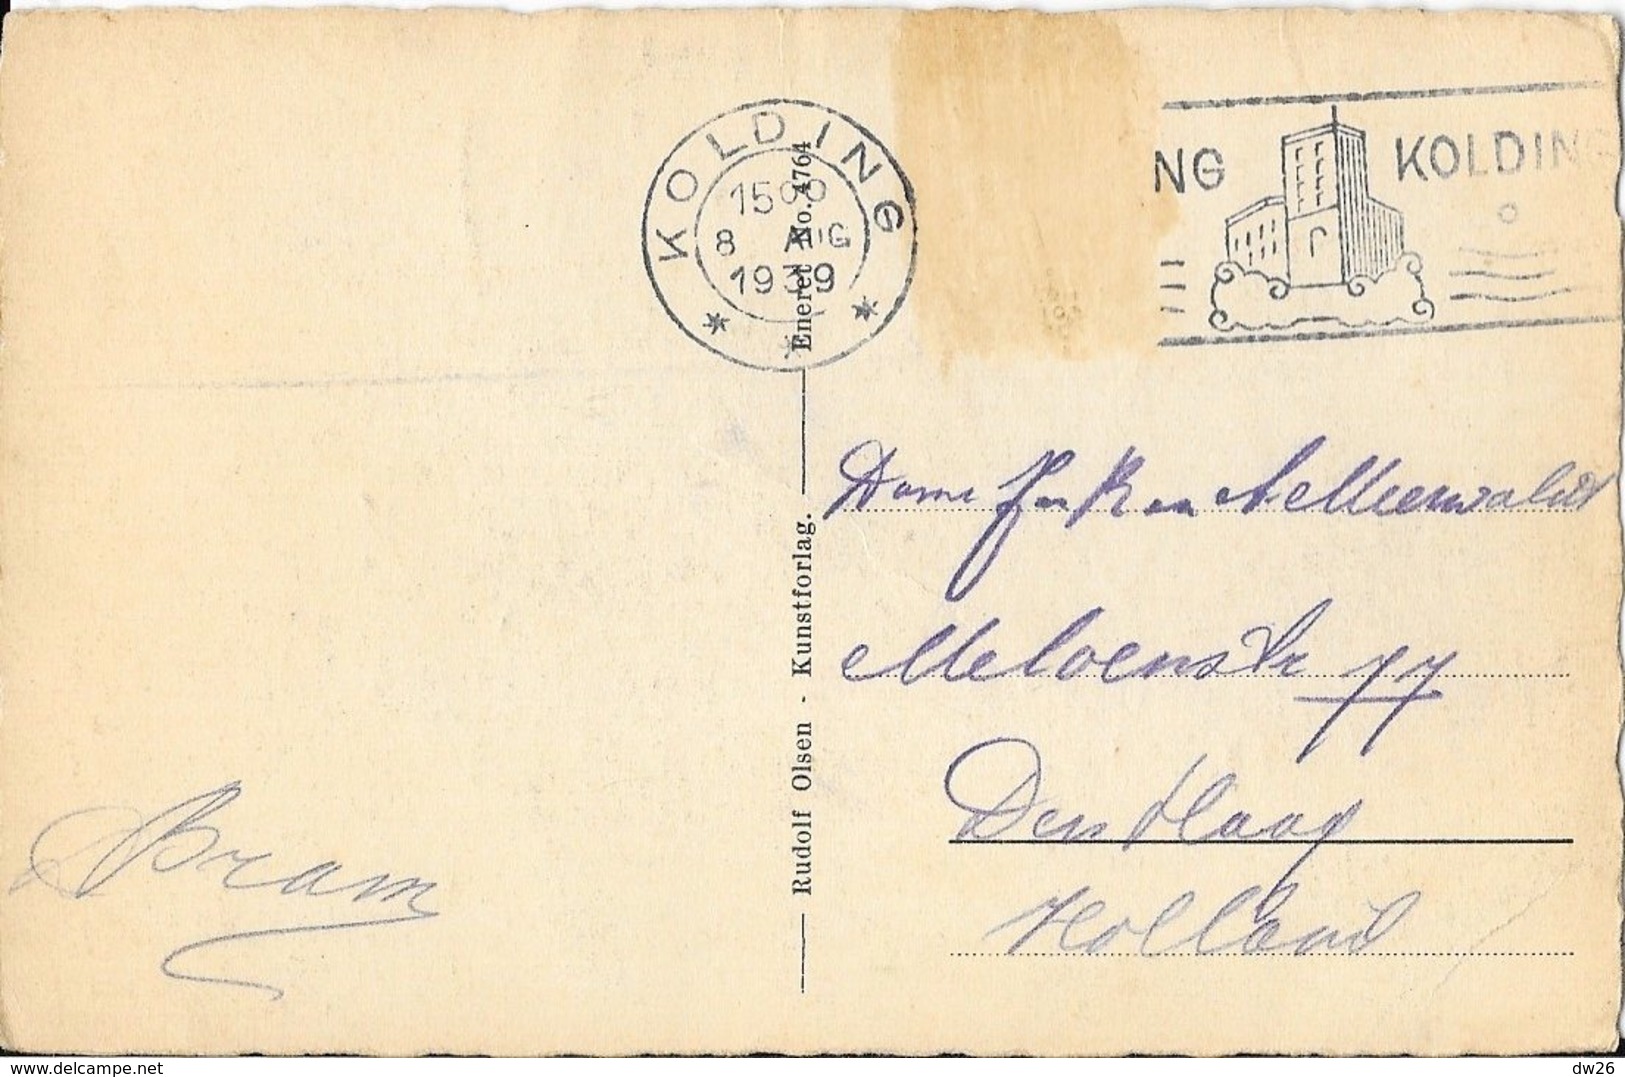 KOLDING
8 AUG
1939
NG KOLDING
Eneret No. 4764
Rudolf Olsen - Kunstforlag.
A Meerwaldt
77
Den Haag
Holland
Bram
www.delcampe.net
dw26